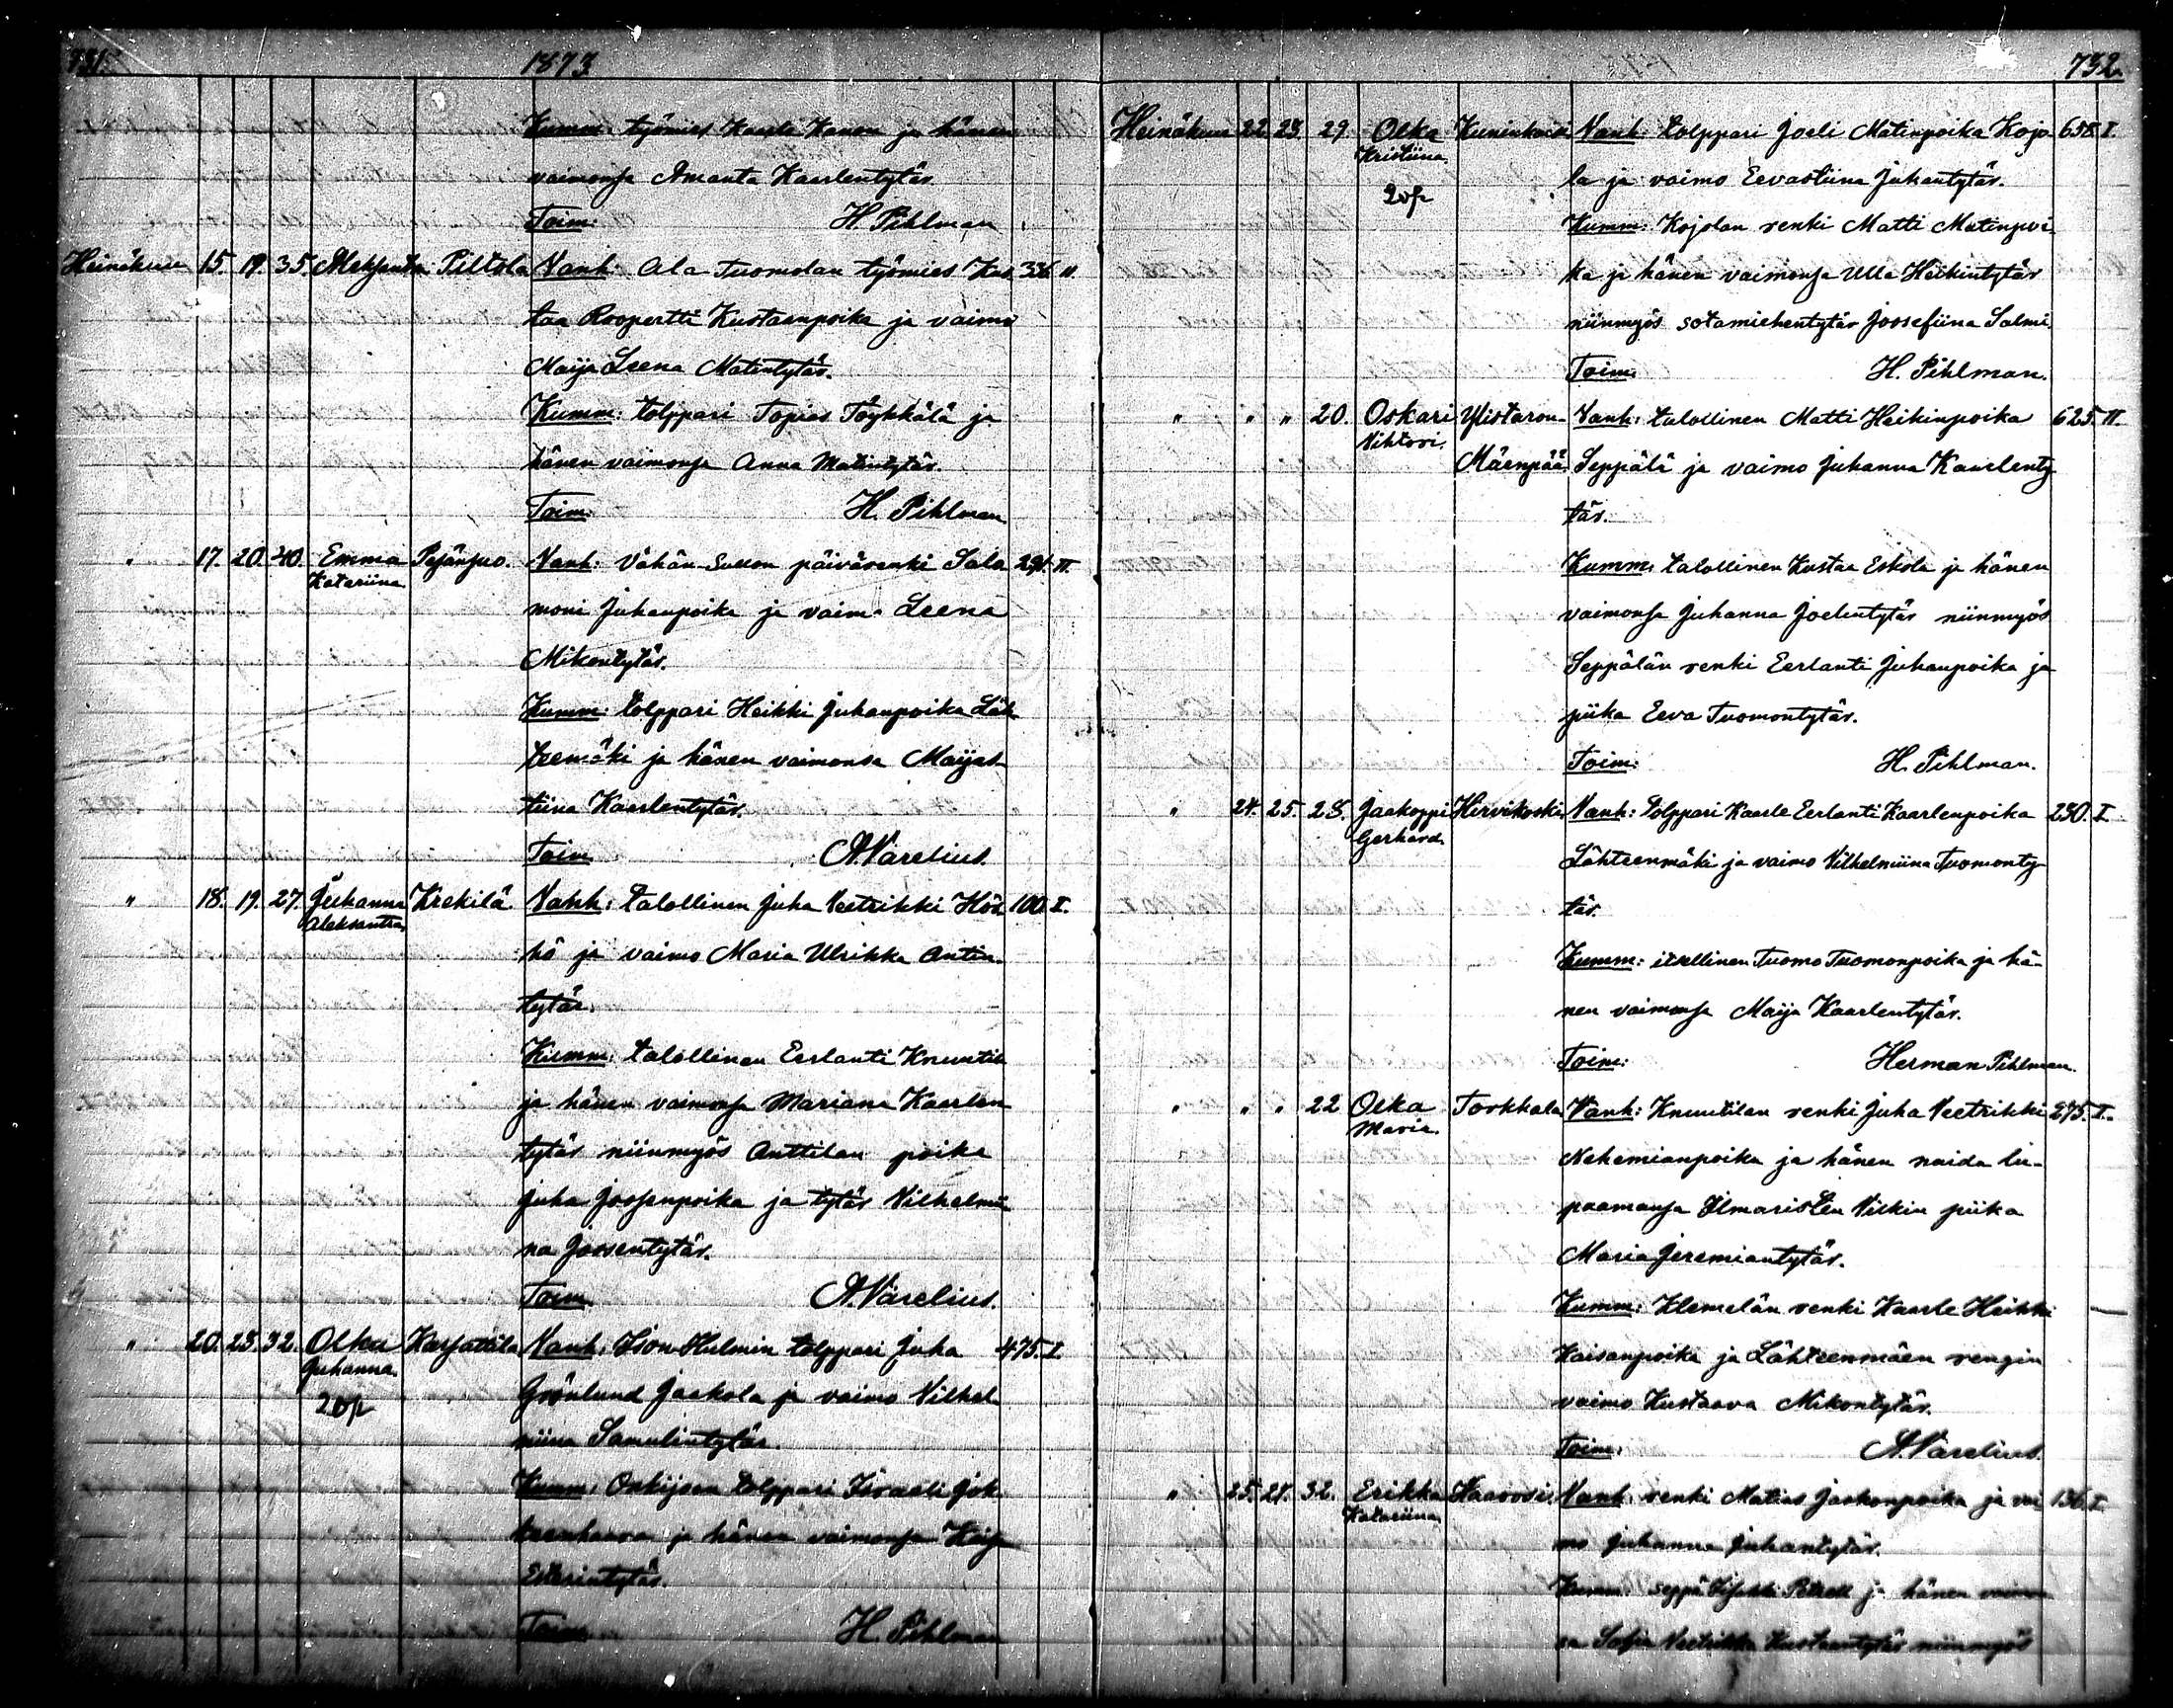 731.
1873.
Kumm: työmies Kaarle Kanon ja hänen
vaimonsa Amanta Kaarlentytär
Toim: H. Pihlman
Heinäkuu 15. 19. 35. Aleksantra Piltola Vanh: Ala Tuomolan työmies Kus 336. II.
taa Roopertti Kustaanpoika ja vaimo
Maija Leena Matintytär.
Kumm: tolppari Topias Töykkälä ja
hänen vaimonsa Anna Matintytär.
Toim: H. Pihlman
" 17. 20. 40. Emma Pejänsuo. Vanh: Vähän-Sullon päivärenki Salo 291. II.
Katariina
moni Juhanpoika ja vaimo Leena
Mikontytär.
Kumm: tolppari Heikki Juhanpoika Läh
teemäki ja hänen vaimonsa Maijas
tiina Kaarlentytär.
Toim A. Varelius.
" 18. 19. 27. Juhanna Krekilä Vanh: talollinen Juha Veetrikki 100. I.
Aleksantra
kö ja vaimo Maria Ulrikka Antin
tytär.
Kumm: talollinen Eerlanti Knuutila
ja hänen vaimonsa Mariana Kaarlen
tytär niinmyös Anttilan poika
Juha Joosenpoika ja tytär Vilhelmii
na Joosentytär.
Toim A. Varelius.
" 20. 23. 32. Olka Karjattila Vanh: Ison-Hulmin tolppari Juha 475. I.
Juhanna.
Grönlund Jaakola ja vaimo Vilhel
miina Samulintytär.
Kumm: Onkijoen tolppari Israeli Jok
ja hänen vaimonsa
Esterintytär.
Toim H. Pihlman
732.
Heinäkuu 22. 23. 29. Olka Kuninkaisi Vanh: tolppari Joeli Matinpoika Kojo 658. I.
Kristiina.
la ja vaimo Eevastiina Juhantytär.
Kumm: Kojolan renki Matti Matinpoi
ka ja hänen vaimonsa Ulla Heikintytär
niinmyös sotamiehentytär Joosefiina Salmi.
Toim: H. Pihlman.
" " " 20. Oskari Ylistaron- Vanh: talollinen Matti Heikinpoika 625. II.
Vihtori.
Mäenpää. Seppälä ja vaimo Juhanna Kaarlenty
tär.
Kumm: talollinen Kustaa Eskola ja hänen
vaimonsa Juhanna Joelintytär niinmyös
Seppälän renki Eerlanti Juhanpoika ja
piika Eeva Tuomontytär.
Toim: H. Pihlman.
" 24. 25. 28. Jaakoppi Hirvikoski. Vanh: tolppari Kaarle Eerlanti Kaarlenpoika 230. I.
Gerhard.
Lähteenmäki ja vaimo Vilhelmiina Tuomonty
tär.
Kumm: itsellinen Tuomo Tuomonpoika ja hä-
nen vaimonsa Maija Kaarlentytär.
Toim: Herman Pihlman.
" " " 22 Olka Torkkala Vanh: Knuutilan renki Juha Veetrikki 275. I.
Maria.
Nehemianpoika ja hänen naida lu-
paamansa Ilmaristen Vilkin piika
Maria Jeremiantytär.
Kumm: Klemelän renki Kaarle Heikki
Kaisanpoika ja Lähteenmäen rengin
vaimo Kustaava Mikontytär.
Toim: A. Varelius.
" 25. 27. 32. Erikka Vanh: renki Matias Jaakonpoika ja vai 136. I.
Katariina
mo Juhanna Juhantytär.
Kumm: seppä Petrell ja hänen vaimon
sa Sofia Veetrikka Kustaantytär niinmyös